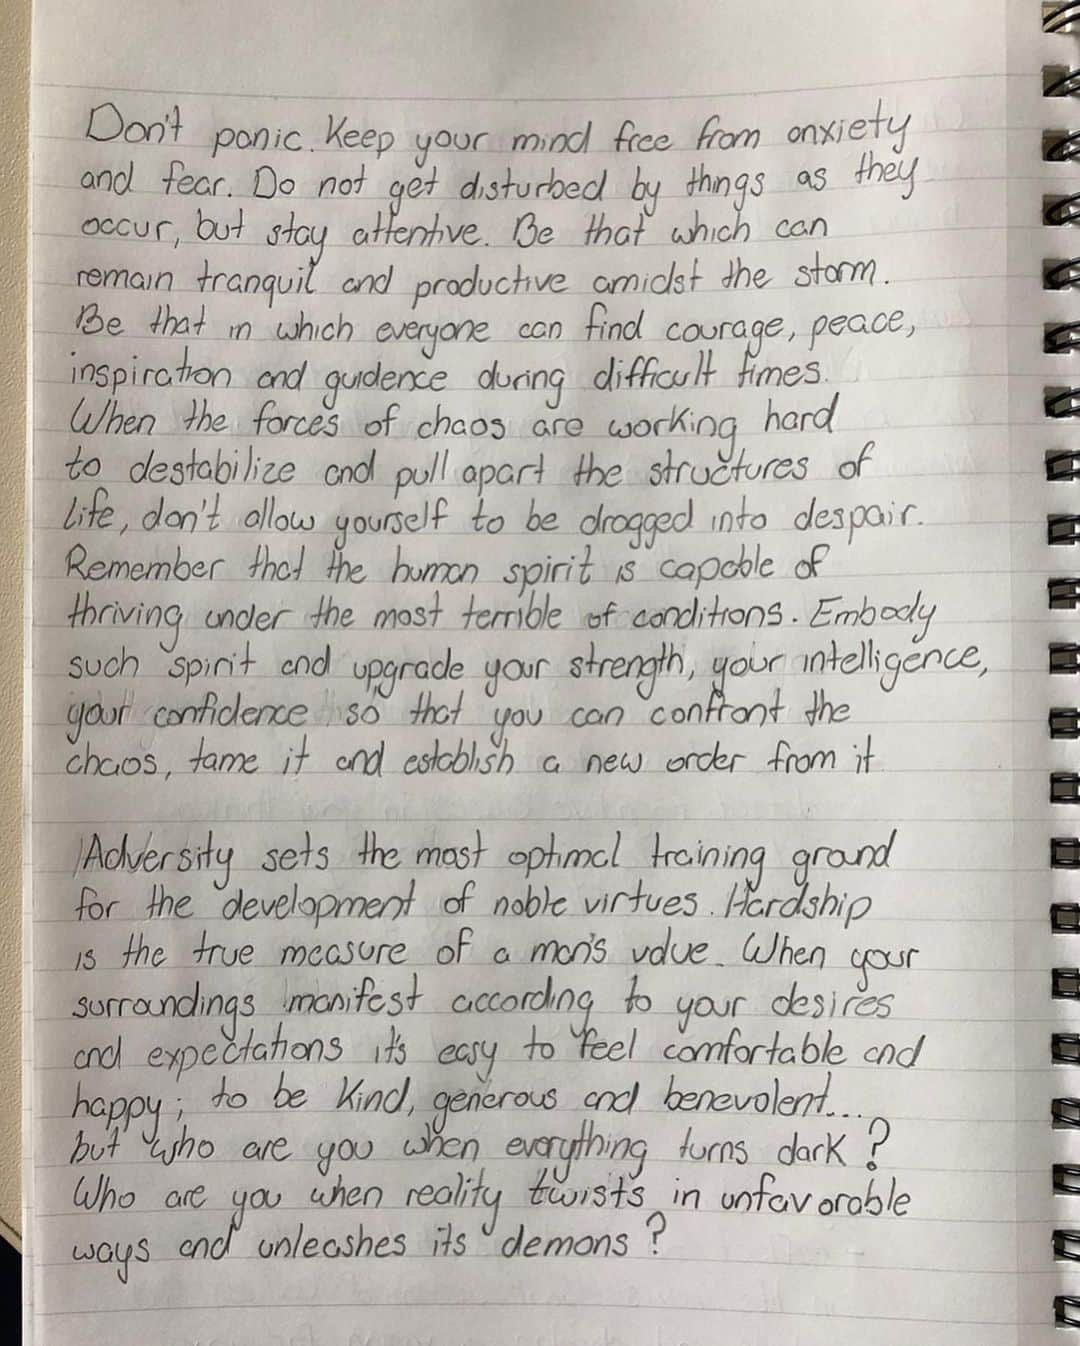 Don't panic. Keep your mind free from anxiety
and fear. Do not get disturbed by things as they
occur, but stay attentive. Be that which can
remain tranquil and productive amidst the storm.
Be that in which everyone can find courage, peace,
inspiration and guidence during difficult times.
When the forces of chaos are working hard
to destabilize and pull apart the structures of
life, don't allow yourself to be dragged into despair.
Remember that the human spirit is capable of
thriving under the most terrible of conditions. Embody
such spirit and upgrade your strength, your intelligence,
your confidence so that you can confront the
chaos, tame it and establish a new order from it
Adversity sets the most optimal training ground
for the development of noble virtues. Hardship
is the true measure of a man's value. When your
surroundings manifest according to your desires
and expectations it's easy to feel comfortable and
happy; to be kind, generous and benevolent...
but who are you when everything turns dark?
Who are you when reality twists in unfavorable
ways and unleashes its demons?